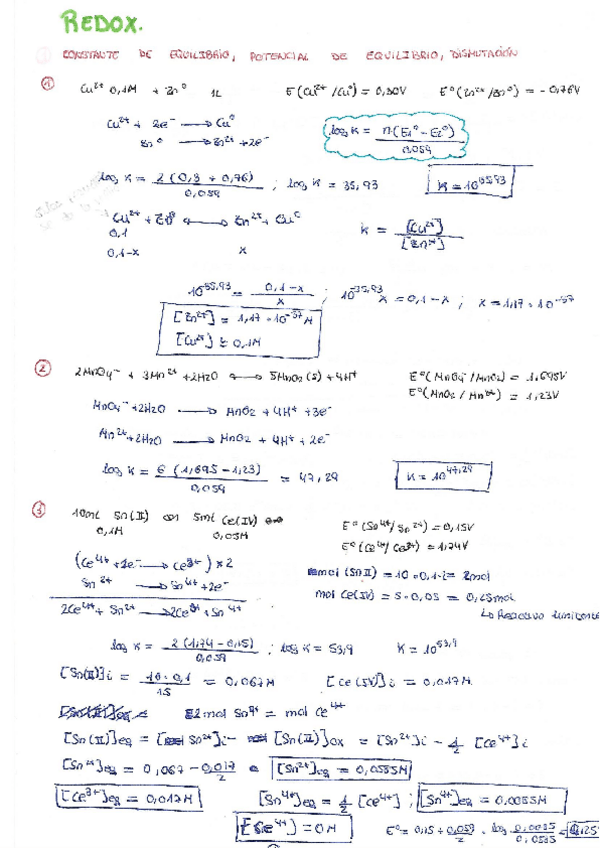 REDOX.
① CONSTANTE DE EQUILIBRIO, POTENCIAL DE EQUILIBRIO, DISMUTACIÓN
① Cu²⁺ 0,1M + Zn⁰ 1L E(Cu²⁺/Cu⁰) = 0,30V E⁰(Zn²⁺/Zn⁰) = -0,76V
Cu²⁺ + 2e⁻ → Cu⁰
log K = n(E₁⁰ - E₂⁰) / 0,059
Zn⁰ → Zn²⁺ + 2e⁻
log K = 2(0,3 + 0,76) / 0,059 ; log K = 35,93 K = 10^35,93
Cu²⁺ + Zn⁰ ↔ Zn²⁺ + Cu⁰ K = [Cu²⁺] / [Zn²⁺]
0,1
0,1-x x
10^35,93 = 0,1-x / x ; 10^35,93 x = 0,1-x ; x = 1,17·10^-37
[Zn²⁺] = 1,17·10^-37 M
[Cu²⁺] ≅ 0,1M
② 2MnO₄⁻ + 3Mn²⁺ + 2H₂O ↔ 5MnO₂(s) + 4H⁺ E⁰(MnO₄⁻/MnO₂) = 1,695V
E⁰(MnO₂/Mn²⁺) = 1,23V
MnO₄⁻ + 2H₂O → MnO₂ + 4H⁺ + 3e⁻
Mn²⁺ + 2H₂O → MnO₂ + 4H⁺ + 2e⁻
log K = 6(1,695 - 1,23) / 0,059 = 47,29 K = 10^47,29
③ 10mL Sn(II) con 5mL Ce(IV) E⁰(Sn⁴⁺/Sn²⁺) = 0,15V
0,1M 0,05M E⁰(Ce⁴⁺/Ce³⁺) = 1,74V
(Ce⁴⁺ + 1e⁻ → Ce³⁺) × 2
mol (Sn II) = 10·0,1·2 = 2mol
Sn²⁺ → Sn⁴⁺ + 2e⁻
mol Ce(IV) = 5·0,05 = 0,25mol
2Ce⁴⁺ + Sn²⁺ → 2Ce³⁺ + Sn⁴⁺ ↳ Reactivo
log K = 2(1,74 - 0,15) / 0,059 ; log K = 53,9 K = 10^53,9
[Sn(II)]i = 10·0,1 / 15 = 0,067M [Ce(IV)]i = 0,017M
mol Sn²⁺ = mol Ce⁴⁺
[Sn(II)]eq = [Sn²⁺]i - [Sn(II)]ox = [Sn²⁺]i - 1/2 [Ce⁴⁺]i
[Sn²⁺]eq = 0,067 - 0,017/2 [Sn²⁺]eq = 0,0585M
[Ce³⁺]eq = 0,017M [Sn⁴⁺]eq = 1/2 [Ce⁴⁺] ; [Sn⁴⁺]eq = 0,0085M
[Ce⁴⁺] = 0M E⁰ = 0,15 + 0,059/2 · log 0,0085/0,0585 =